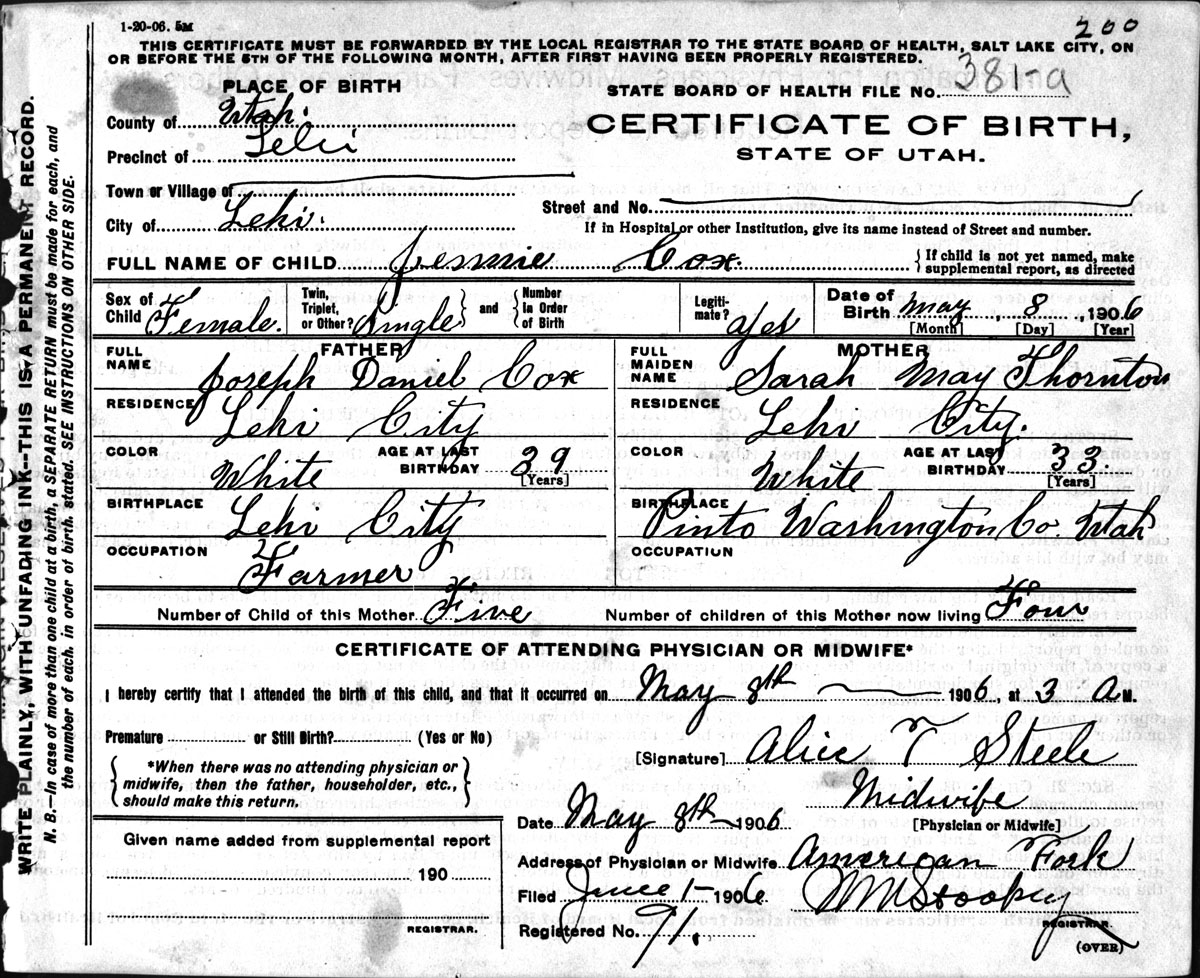 1-20-06. 5M
200
THIS CERTIFICATE MUST BE FORWARDED BY THE LOCAL REGISTRAR TO THE STATE BOARD OF HEALTH, SALT LAKE CITY, ON
OR BEFORE THE 5TH OF THE FOLLOWING MONTH, AFTER FIRST HAVING BEEN PROPERLY REGISTERED.
PLACE OF BIRTH
STATE BOARD OF HEALTH FILE NO. 381-a
County of Utah.
CERTIFICATE OF BIRTH,
Precinct of Lehi
STATE OF UTAH.
Town or Village of
Street and No.
City of Lehi.
If in Hospital or other Institution, give its name instead of Street and number.
FULL NAME OF CHILD Jennie Cox. { If child is not yet named, make
supplemental report, as directed
Sex of Child Female. Twin, Triplet, or Other? Single } and { Number In Order of Birth Legiti-mate? Yes Date of Birth May 8, 1906
[Month] [Day] [Year]
FATHER MOTHER
FULL NAME Joseph Daniel Cox FULL MAIDEN NAME Sarah May Thornton
RESIDENCE Lehi City RESIDENCE Lehi City.
COLOR White AGE AT LAST BIRTHDAY 39 [Years] COLOR White AGE AT LAST BIRTHDAY 33. [Years]
BIRTHPLACE Lehi City BIRTHPLACE Pinto Washington Co Utah
OCCUPATION Farmer OCCUPATION
Number of Child of this Mother Five Number of children of this Mother now living Four
CERTIFICATE OF ATTENDING PHYSICIAN OR MIDWIFE*
I hereby certify that I attended the birth of this child, and that it occurred on May 8th 1906, at 3 A M.
Premature or Still Birth? (Yes or No)
[Signature] Alice T Steele
{ *When there was no attending physician or
midwife, then the father, householder, etc.,
should make this return. }
Midwife
Date May 8th 1906 [Physician or Midwife]
Given name added from supplemental report
190
REGISTRAR.
Address of Physician or Midwife American Fork
Filed June 1- 1906.
Registered No. 71.
REGISTRAR.
(OVER)
WRITE PLAINLY, WITH UNFADING INK--THIS IS A PERMANENT RECORD.
N. B.--In case of more than one child at a birth, a SEPARATE RETURN must be made for each, and
the number of each, in order of birth, stated. SEE INSTRUCTIONS ON OTHER SIDE.